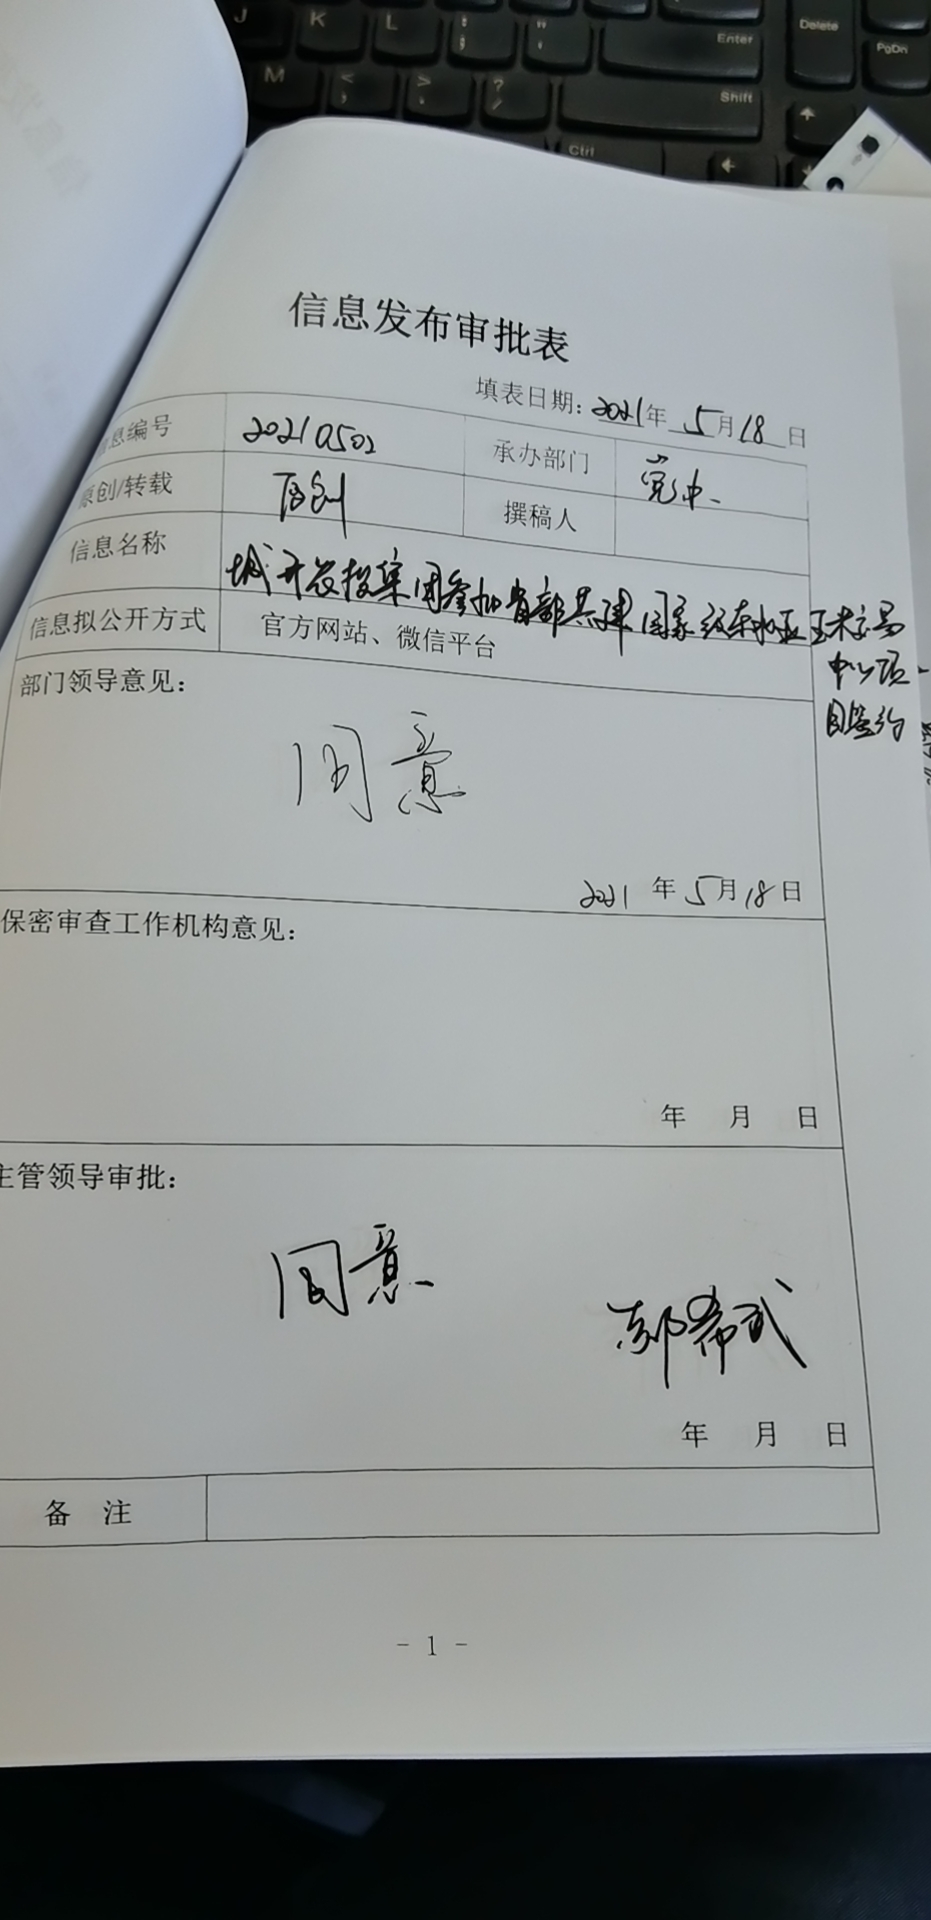 信息发布审批表
填表日期: 2021年 5月18日
信息编号 20210502 承办部门
原创/转载 原创 撰稿人
信息名称 城开发投集团参加省部共建国家级东北亚玉米交易
中心项
目签约
信息拟公开方式 官方网站、微信平台
部门领导意见:
同意
2021 年 5月18日
保密审查工作机构意见:
年 月 日
主管领导审批:
同意
郭希武
年 月 日
备 注
- 1 -
J K L ; : ' " Enter Delete PgDn
M < , > . ? / Shift
Ctrl